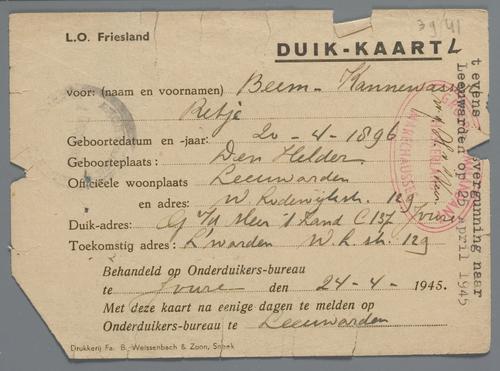 39 41
L.O. Friesland
DUIK-KAART L
voor: (naam en voornamen) Beem - Kannewasser
Retje
Geboortedatum en -jaar: 20 - 4 - 1896
Geboorteplaats: Den Helder
Officiëele woonplaats Leeuwarden
en adres: W. Lodewijkstr. 129
Duik-adres: G v/d Meer 't Zand C 137 Joure
Toekomstig adres: L'warden W. L. str. 129
Behandeld op Onderduikers-bureau
te Joure den 24-4- 1945.
Met deze kaart na eenige dagen te melden op
Onderduikers-bureau te Leeuwarden
Drukkerij Fa. B. Weissenbach & Zoon, Sneek
tevens vergunning naar
Leeuwarden op 25 april 1945
MARECHAUSSEE